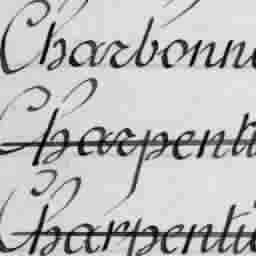 Charbonne
Charpenti
Charpenti